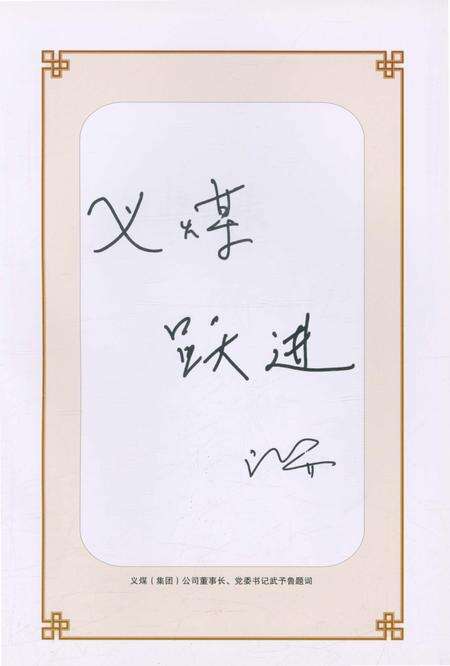 义煤
跃进
义煤（集团）公司董事长、党委书记武予鲁题词